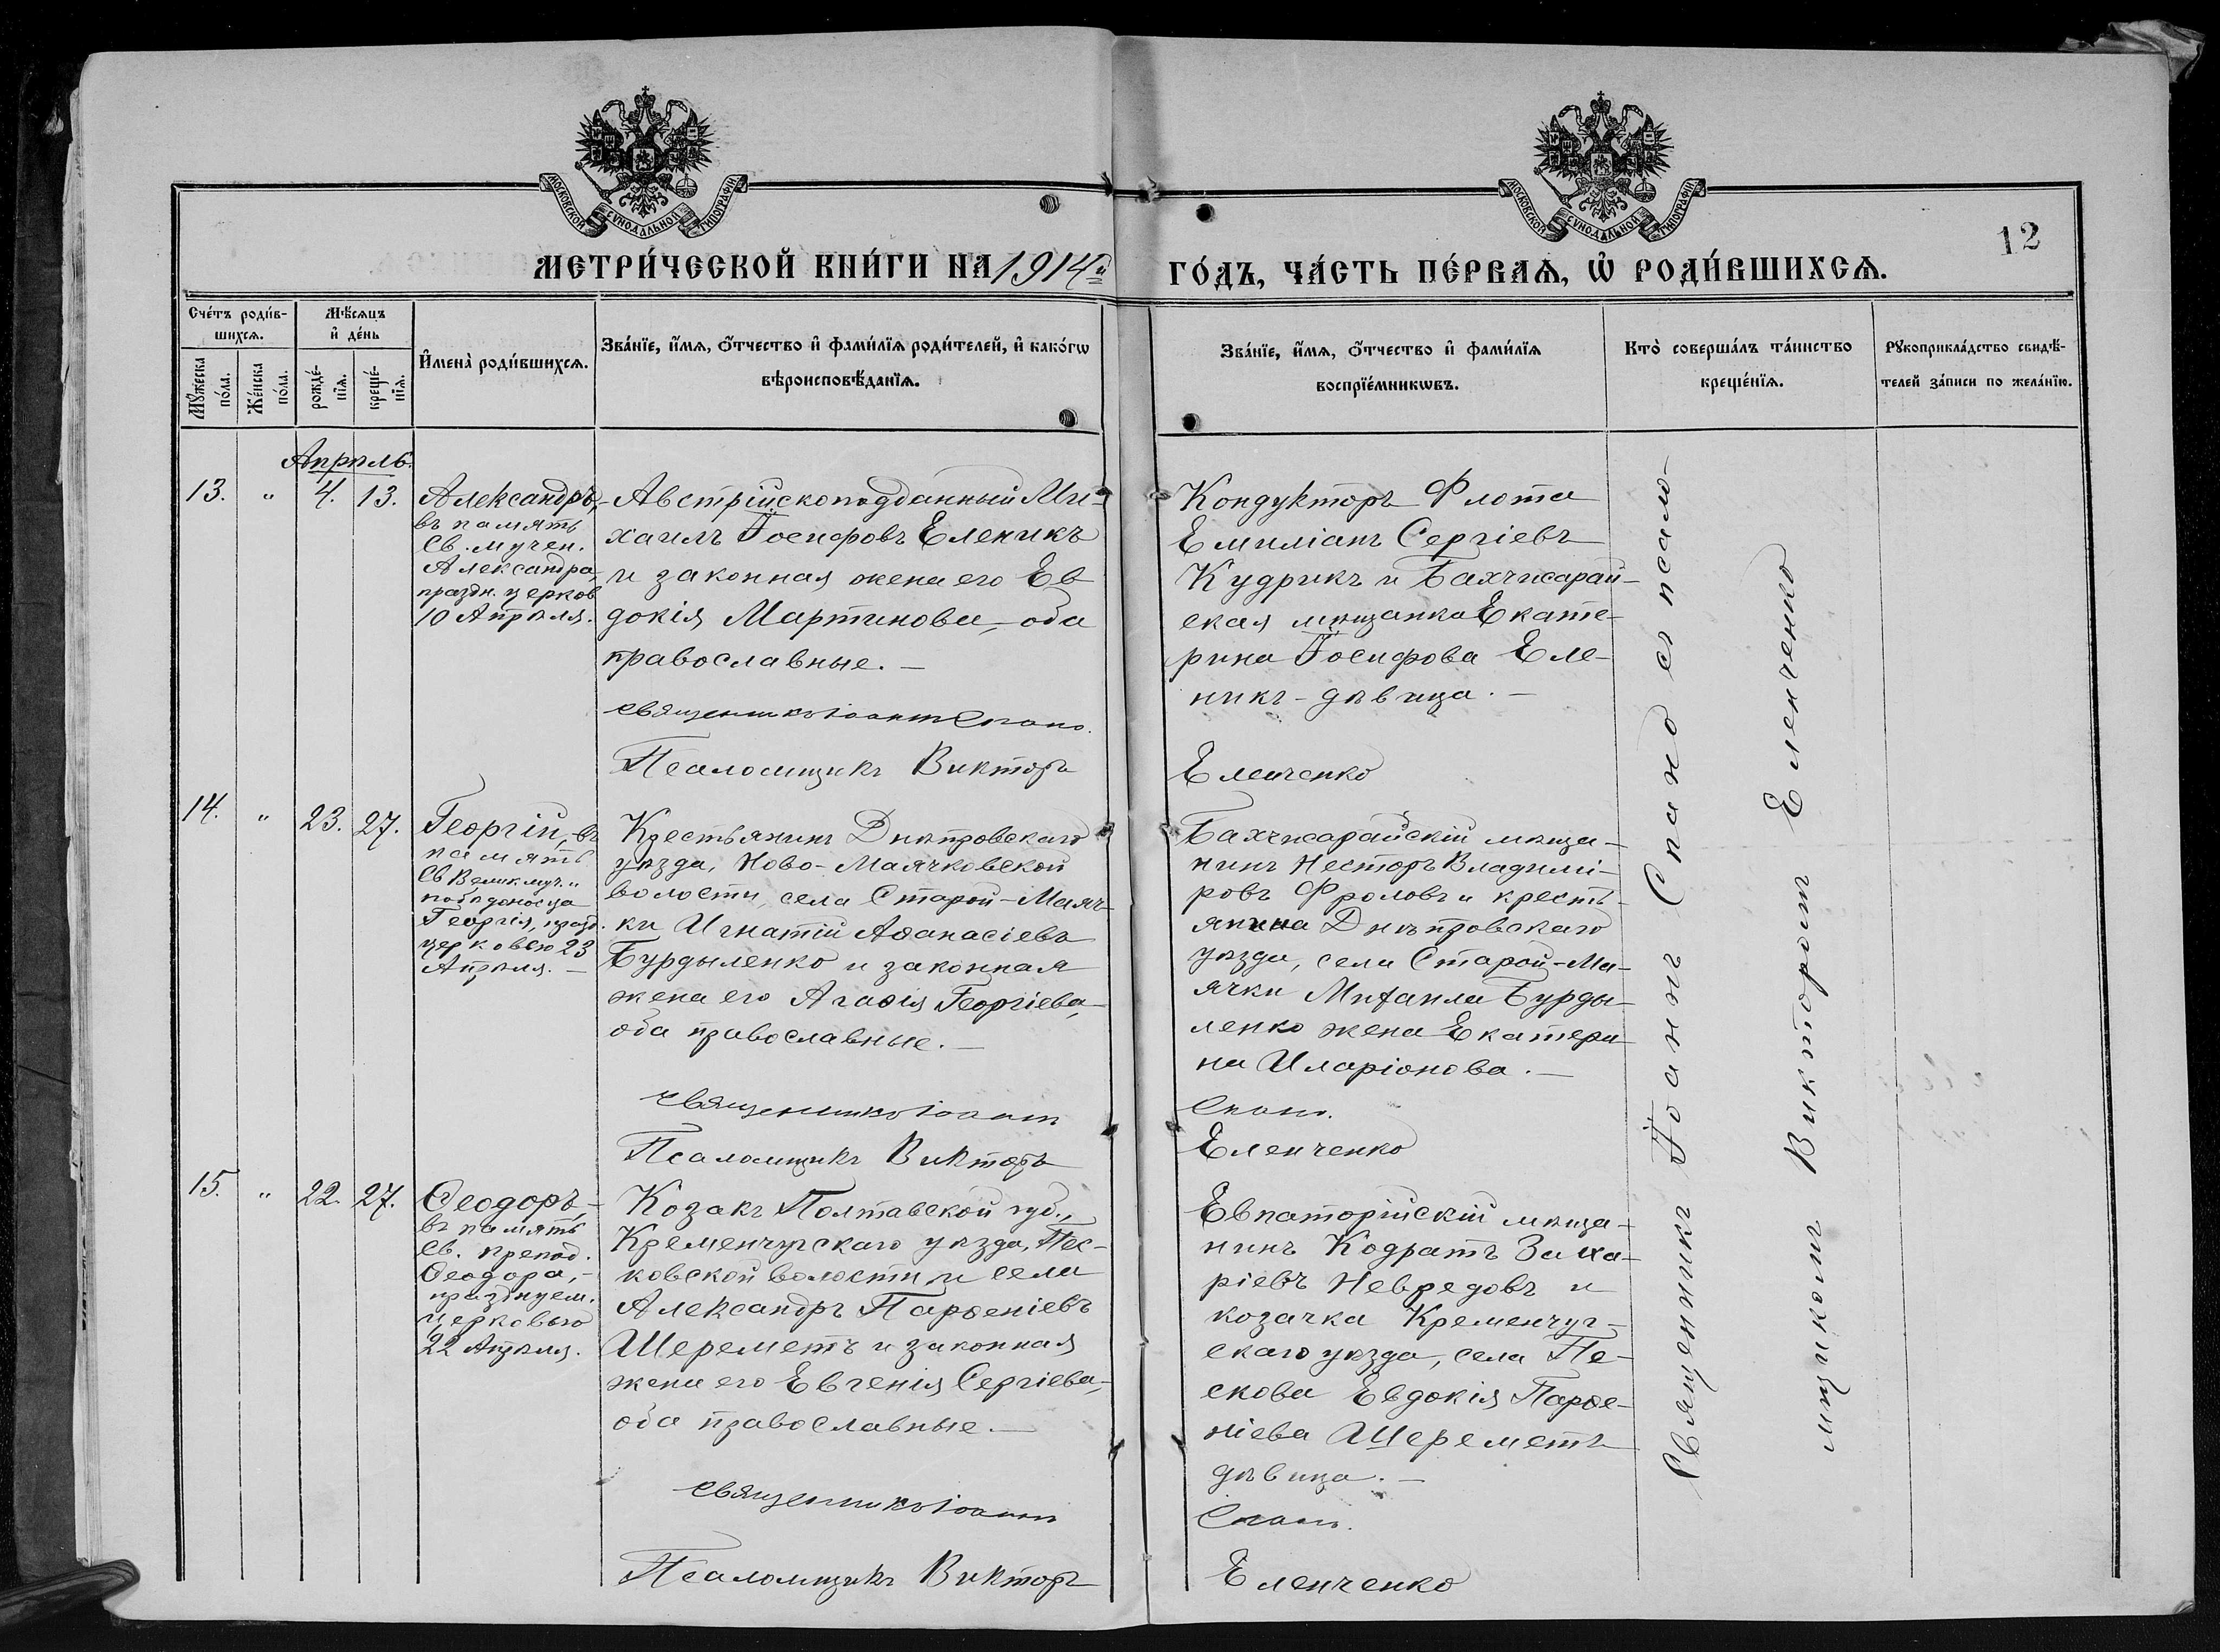 МОСКОВСКОЙ СѴНОДАЛЬНОЙ ТИПОГРАФІИ
МОСКОВСКОЙ СѴНОДАЛЬНОЙ ТИПОГРАФІИ
12
МЕТРИ́ЧЕСКОЙ КНИ́ГИ НА 1914й
ГО́ДЪ, ЧА́СТЬ ПЕ́РВАѦ, Ѡ РОДИ́ВШИХСѦ.
Сче́тъ роди́в-
шихсѧ.
Мꙋ́жеска
по́ла.
Же́нска
по́ла.
Мѣ́сѧцъ
и де́нь
рожде́-
нїѧ.
креще́-
нїѧ.
Имена̀ роди́вшихсѧ.
Зва́нїе, и́мѧ, ѻ́тчество и фами́лїѧ роди́телей, и како́гѡ
вѣроисповѣ́данїѧ.
Зва́нїе, и́мѧ, ѻ́тчество и фами́лїѧ
воспрїе́мникѡвъ.
Кто̀ соверша́лъ та́инство
креще́нїѧ.
Рꙋкоприкла́дство свидѣ́-
телей за́писи по жела́нїю.
Апрѣль.
13.
"
4.
13.
Александръ,-
въ память
Св. мучен.
Александра,
праздн. церков.
10 Апрѣля.
Австрійскоподданный Ми-
хаилъ Іосифовъ Еленикъ
и законная жена его Ев-
докія Мартинова,- оба
православные.-
Священникъ Іоаннъ Спано.
Псаломщикъ Викторъ
Кондукторъ Флота
Емиліанъ Сергіевъ
Кудрикъ и Бахчисарай-
ская мѣщанка Екате-
рина Іосифова Еле-
никъ-дѣвица.-
Еленченко
14.
"
23.
27.
Георгій,-въ
память
Св Великмуч. и
побѣдоносца
Георгія, празд.
церковью 23
Апрѣля.-
Крестьянинъ Днѣпровскаго
уѣзда, Ново-Маячковской
волости, села Старой-Маяч-
ки Игнатій Аѳанасіевъ
Бурдыленко и законная
жена его Агаѳія Георгіева,-
оба православные.-
Священникъ Іоаннъ
Псаломщикъ Викторъ
Бахчисарайскій мѣща-
нинъ Несторъ Владимі-
ровъ Фроловъ и кресть-
янина Днѣпровскаго
уѣзда, села Старой-Ма-
ячки Михаила Бурды-
ленко жена Екатери-
на Иларіонова.-
Спано.
Еленченко
15.
"
22.
27.
Ѳеодоръ,-
въ память
св. препод.
Ѳеодора,-
празднуем.
церковью
22 Апрѣля.
Козакъ Полтавской губ.,
Кременчугскаго уѣзда, Пес-
ковской волости и села
Александръ Парѳеніевъ
Шереметъ и законная
жена его Евгенія Сергіева,-
оба православные.-
Священникъ Іоаннъ
Псаломщикъ Викторъ
Евпаторійскій мѣща-
нинъ Кодратъ Заха-
ріевъ Невредовъ и
козачка Кременчуг-
скаго уѣзда, села Пе-
скова Евдокія Парѳе-
ніева Шереметъ
дѣвица.-
Спано.
Еленченко
Священникъ Іоаннъ Спано съ псало-
мщикомъ Викторомъ Еленченко